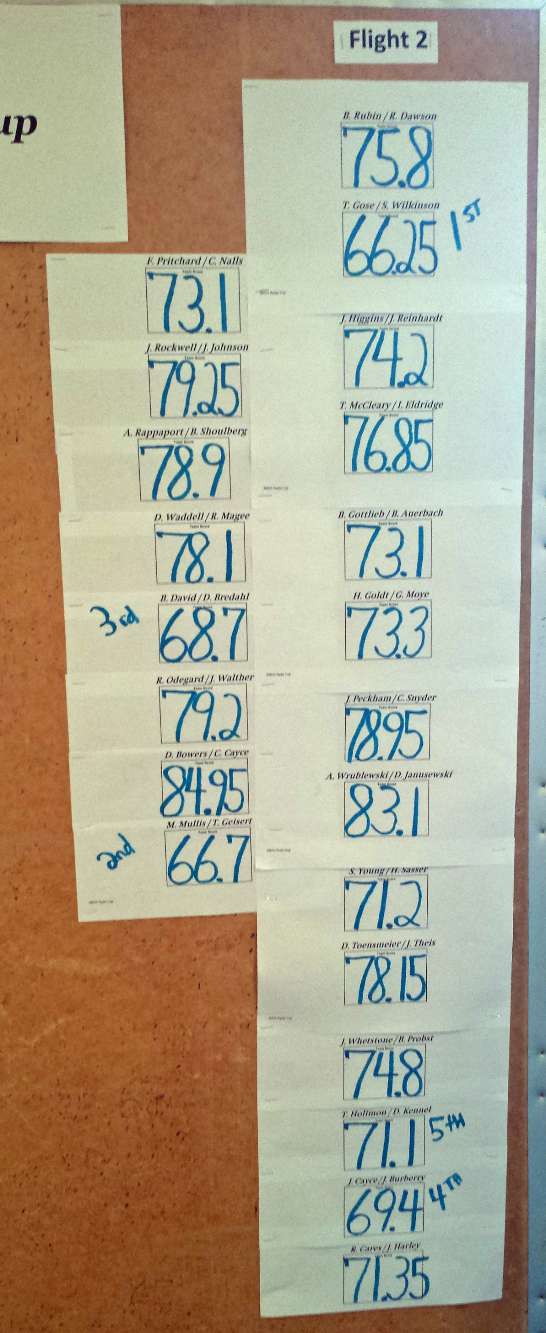 up
Flight 2
F. Pritchard / C. Nalls
73.1
J. Rockwell / J. Johnson
79.25
A. Rappaport / B. Shoulberg
78.9
D. Waddell / R. Magee
78.1
B. David / D. Bredahl
3rd 68.7
R. Odegard / J. Walther
79.2
D. Bowers / C. Cayce
84.95
M. Mullis / T. Geisert
2nd 66.7
B. Rubin / R. Dawson
75.8
T. Gose / S. Wilkinson
66.25 1ST
J. Higgins / J. Reinhardt
74.2
T. McCleary / I. Eldridge
76.85
B. Gottlieb / B. Auerbach
73.1
H. Goldt / G. Moye
73.3
J. Peckham / C. Snyder
78.95
A. Wrublewski / D. Janusewski
83.1
S. Young / H. Sasser
71.2
D. Toensmeier / J. Theis
78.15
J. Whetstone / B. Probst
74.8
T. Hollmon / D. Kennel
71.1 5TH
J. Cayce / J. Burberry
69.4 4TH
R. Cares / J. Harley
71.35